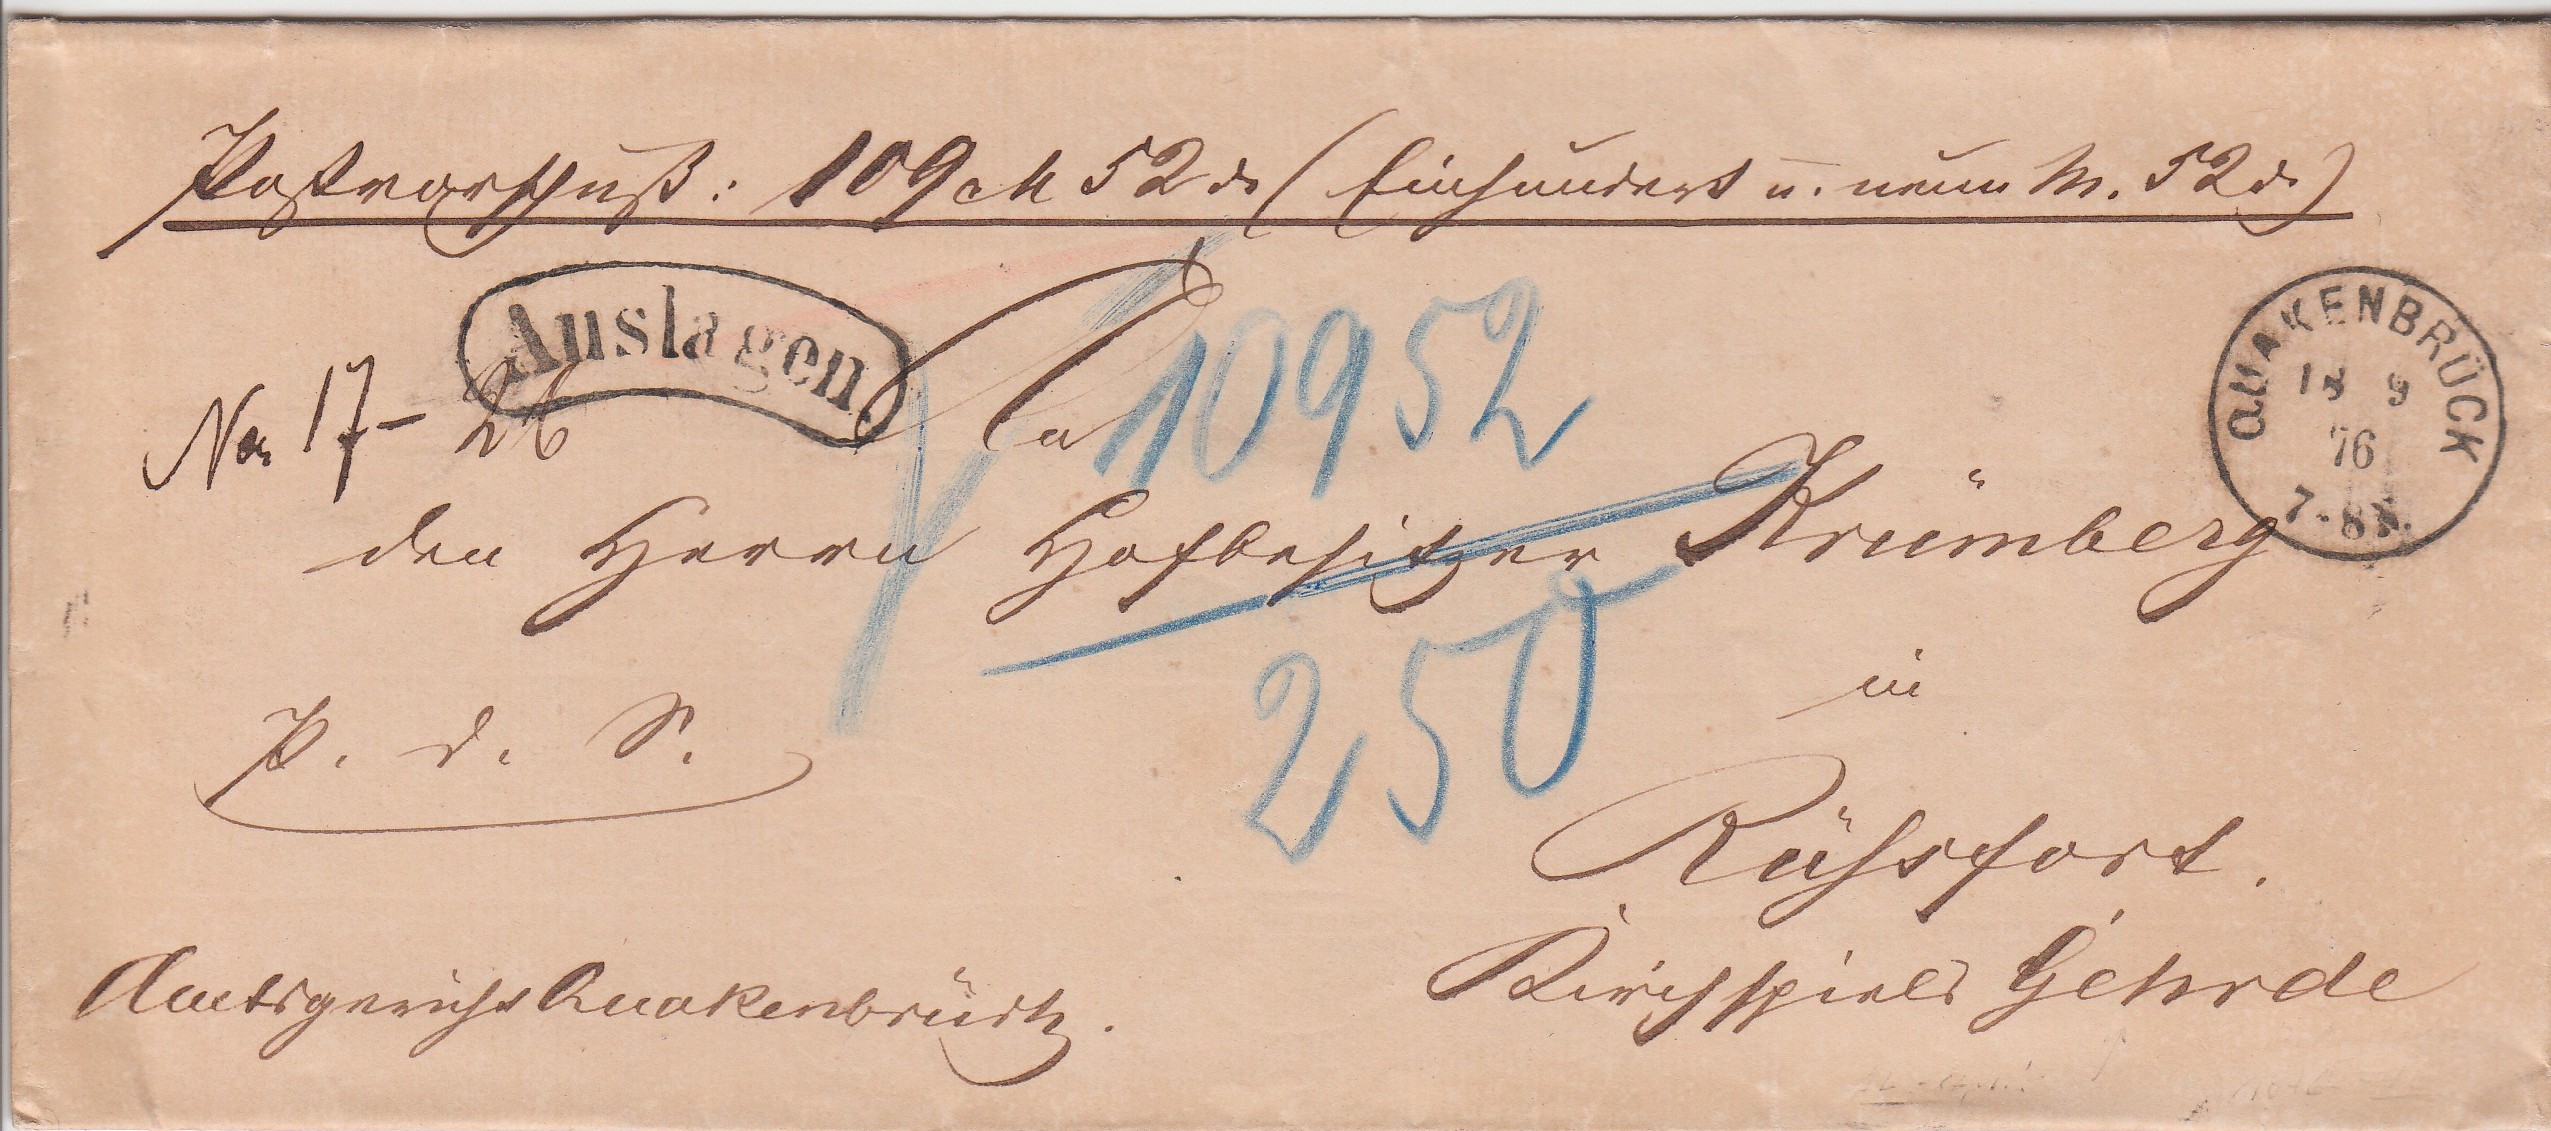 Postvorschuß: 109 M 52 d. (Einhundert u. neun M. 52 d.)
Auslagen
QUAKENBRÜCK
18 9
76
7-8 N.
No. 17-26
An
109 52
den Herrn Hofbesitzer Krümberg
250
in
P. d. S.
Rüsfort.
Amtsgericht Quakenbrück.
Kirchspiels Gehrde